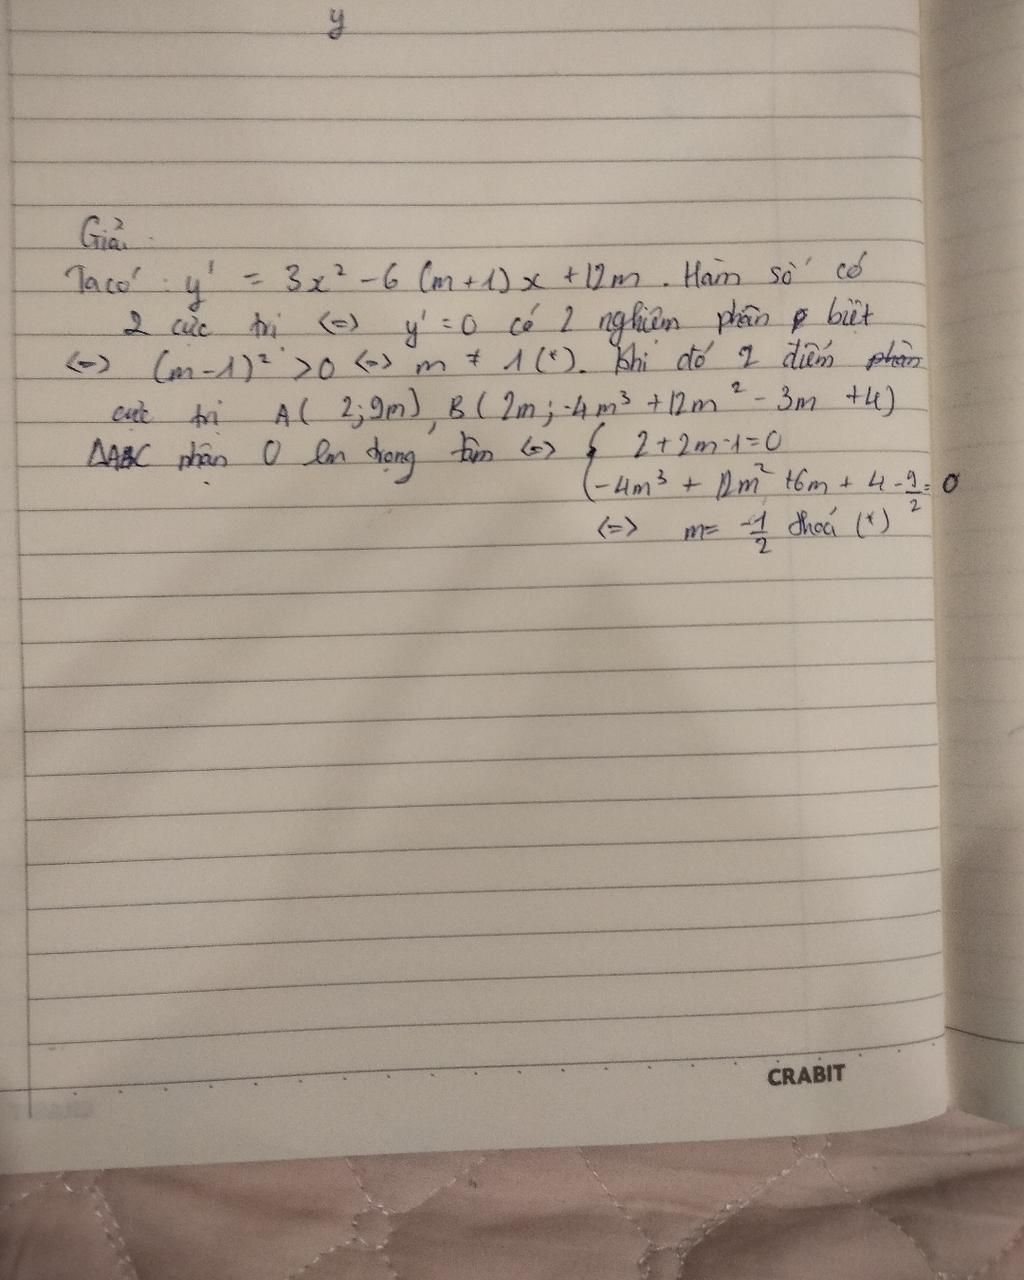 y
Giải
Ta có : y' = 3x² - 6 (m+1)x + 12m . Hàm số có
2 cực trị <=> y' = 0 có 2 nghiệm phân biệt
<=> (m-1)² > 0 <=> m ≠ 1 (*). Khi đó 2 điểm
cực trị A( 2; 9m), B( 2m; -4m³ + 12m² - 3m + 4)
ΔABC nhận O làm trọng tâm <=> { 2 + 2m - 1 = 0
-4m³ + 12m² + 6m + 4 - 9/2 = 0
<=> m = -1/2 thoả (*)
CRABIT